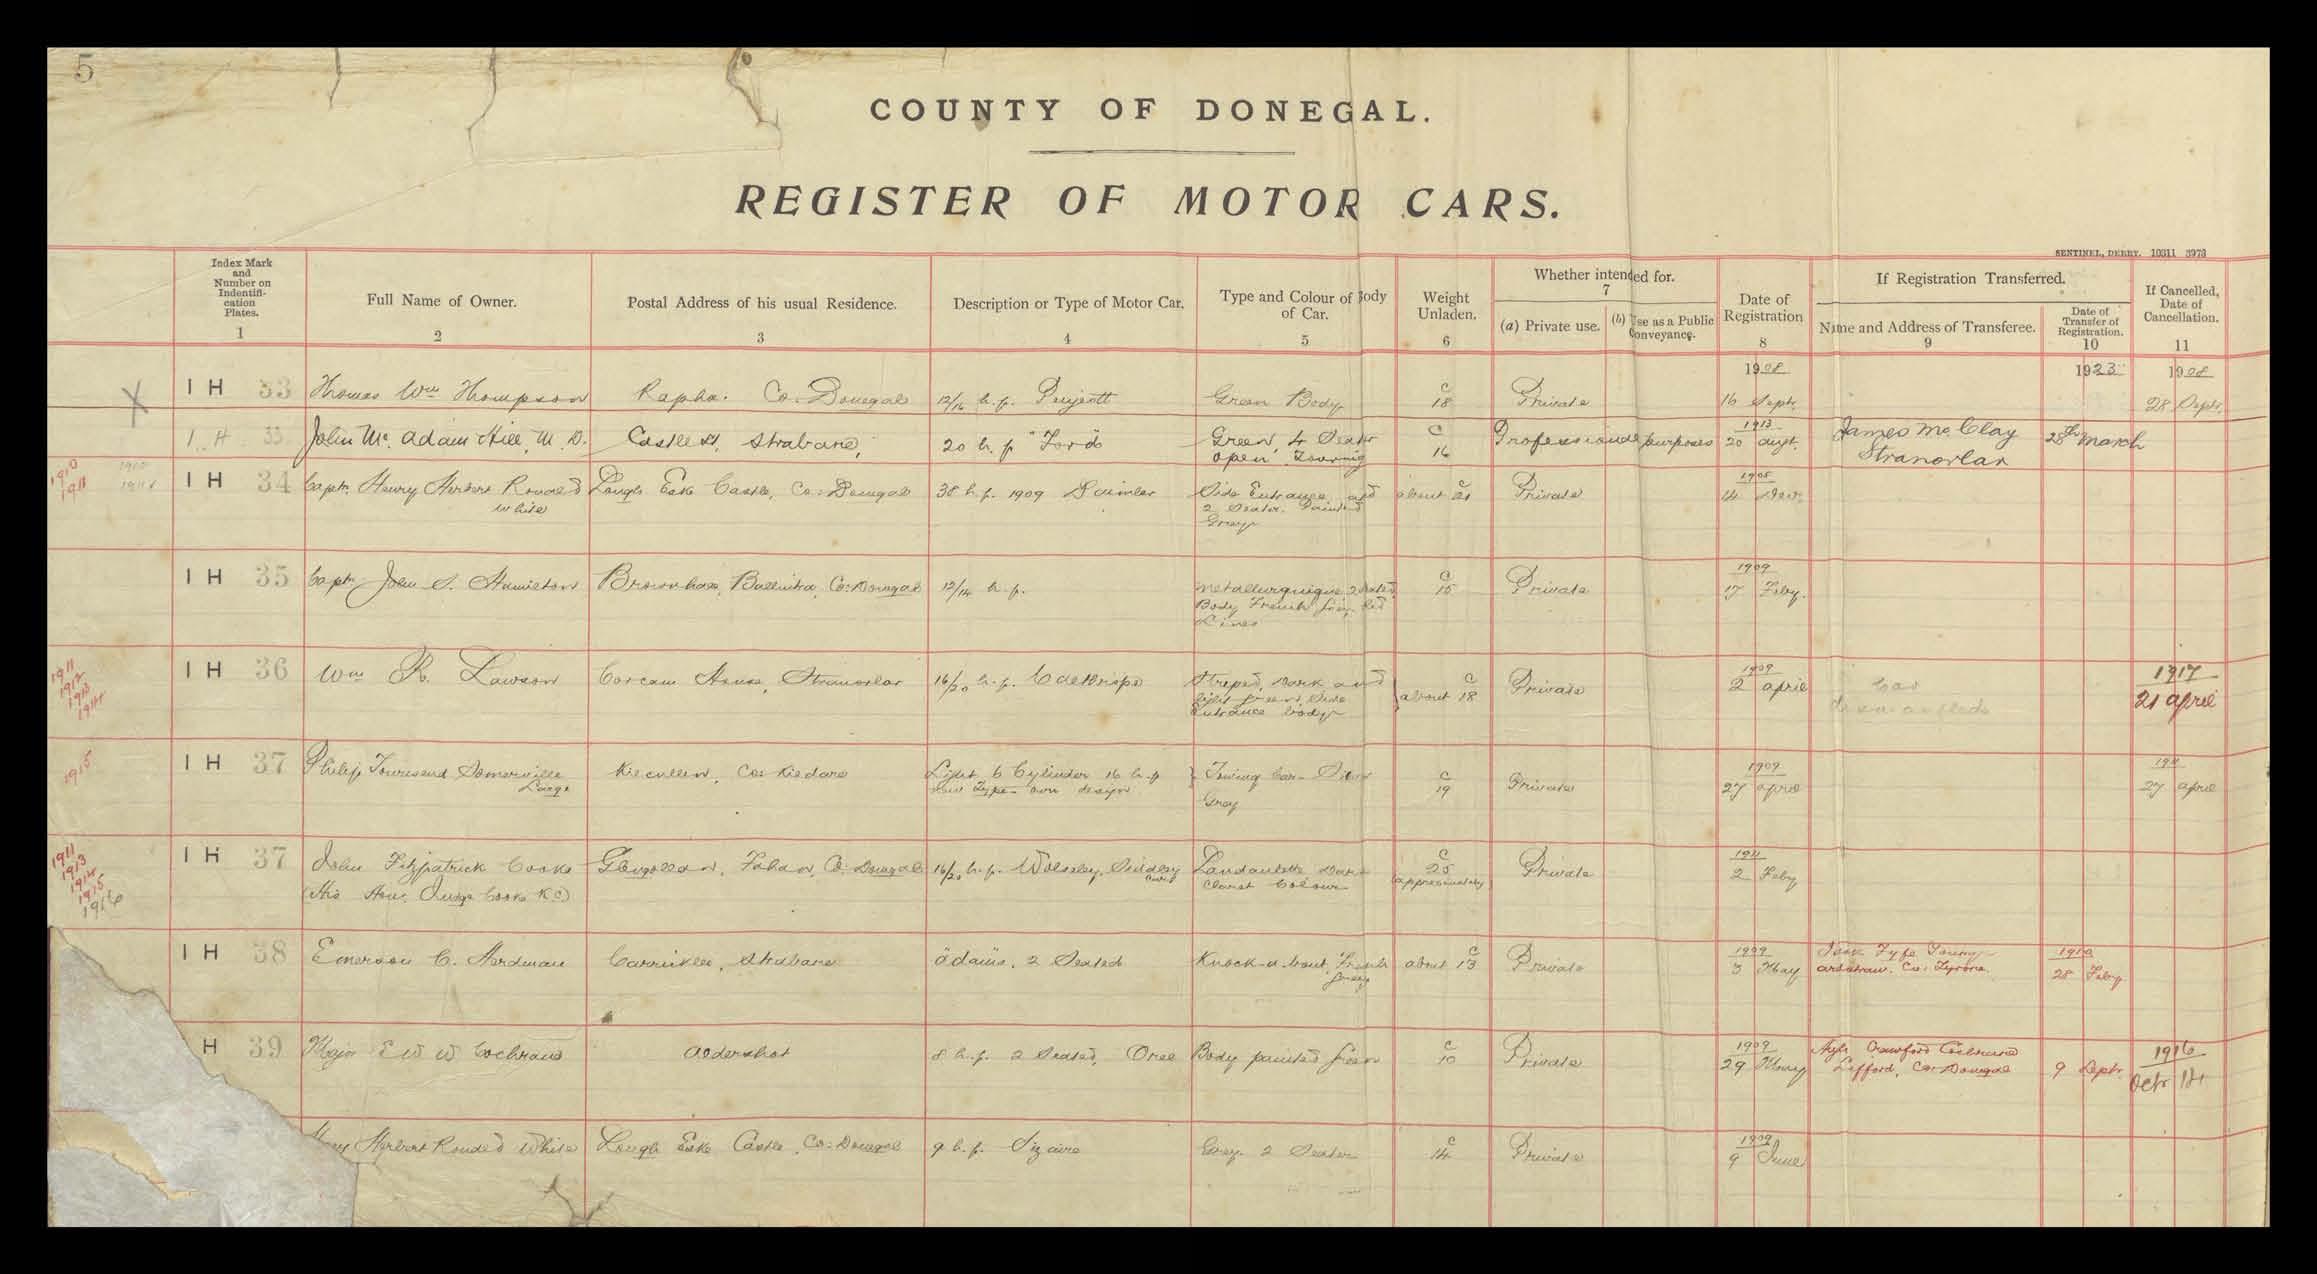 5
COUNTY OF DONEGAL.
REGISTER OF MOTOR CARS.
SENTINEL, DERRY. 10311 3973
Index Mark
and
Number on
Indentifi-
cation
Plates.
1
Full Name of Owner.
2
Postal Address of his usual Residence.
3
Description or Type of Motor Car.
4
Type and Colour of Body
of Car.
5
Weight
Unladen.
6
Whether intended for.
7
(a) Private use.
(b) Use as a Public
Conveyance.
Date of
Registration
8
If Registration Transferred.
Name and Address of Transferee.
9
Date of
Transfer of
Registration.
10
If Cancelled,
Date of
Cancellation.
11
X I H 33 Thomas Wm Thompson Rapho. Co. Donegal 12/16 h.p. Green Body c 18 Private 1908 16 Sept. 1923 1908 28 Sept.
I H 33 John Mc. Adam Hill, M.D. Castle St, Strabane, 20 h.p "Ford" Green 4 Seater c 16 Professional purposes 1913 20 augt. James Mc Clay 28th March
open Touring Stranorlar
1910 1910
1911 1911
I H 34 Capt. Henry Herbert Ronald Lough Eske Castle, Co. Donegal 38 h.p. 1909 Daimler Side Entrance and about c 21 Private 1908 14
White 2 Seater. Painted
Grey
I H 35 Capt. John S. Hamilton Brownhall, Ballintra, Co. Donegal 12/14 h.p. Metallurgique 2 Seated c 15 Private 1909 17 Feby.
Body French Grey, Red
Lines
1911
1912
1913
1914
I H 36 Wm R. Lawson Corcam House, Stranorlar 16/20 h.p. Calthrope Striped, dark and about c 18 Private 1909 2 april Car 1917 21 april
light green, Side
Entrance body
1915
I H 37 Philip Townsend Somerville Kilcullen, Co. Kildare Light 6 Cylinder 16 h.p Touring Car- c 19 Private 1909 27 april 1911 27 april
Large own design Gray
1911
1913
1914
1915
1916
I H 37 John Fitzpatrick Cooke Glengollan, Fahan, Co. Donegal 16/20 h.p. Wolseley, Siddley Car Landaulette Dark c 25 (approximately) Private 1911 2 Feby
(His Hon. Judge Cooke K.C) Claret Colour
I H 38 Emerson C. Herdman Carricklee, Strabane adams, 2 Seated Knock-a-bout, French about c 13 Private 1909 3 May Fyfe Young 1910 28 Feby
Grey ardstraw. Co. Tyrone
H 39 Major E W W Cochrane aldershot 8 h.p. 2 Seated, Body painted green c 10 Private 1909 29 May Crawford Cochrane 9 Septr. 1916 Octr 14
Lifford, Co. Donegal
Herbert Ronald White Lough Eske Castle, Co. Donegal 9 h.p. Sizaire Grey. 2 Seater c 14 Private 1909 9 June